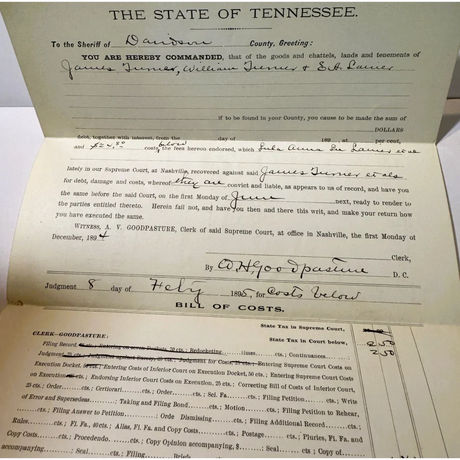 THE STATE OF TENNESSEE.
To the Sheriff of Davidson County, Greeting:
YOU ARE HEREBY COMMANDED, that of the goods and chattels, lands and tenements of
James Turner, William Turner & E. H. Lanier
if to be found in your County, you cause to be made the sum of
DOLLARS
debt, together with interest, from the day of 189 , at per cent,
and $24.80 costs, below the fees herein endorsed, which Lula Anna Lanier et al
lately in our Supreme Court, at Nashville, recovered against said James Turner et als
for debt, damage and costs, whereof they are convict and liable, as appears to us of record, and have you
the same before the said Court, on the first Monday of June next, ready to render to
the parties entitled thereto. Herein fail not, and have you then and there this writ, and make your return how
you have executed the same.
WITNESS, A. V. GOODPASTURE, Clerk of said Supreme Court, at office in Nashville, the first Monday of
December, 1894
Clerk,
By W. H. Goodpasture D. C.
Judgment 8 day of Feby 1895, for costs below
BILL OF COSTS.
State Tax in Supreme Court,
CLERK—GOODPASTURE: State Tax in Court below, 2.50
Filing Record cts.; Entering on cts.; Redocketing times cts.; Continuances 2.50
Judgment, Judgment for Costs, cts.; Entering Supreme Court Costs on
Execution Docket, cts.; Entering Costs of Inferior Court on Execution Docket, 50 cts.; Entering Supreme Court Costs
on Execution cts.; Endorsing Inferior Court Costs on Execution, 25 cts.; Correcting Bill of Costs of Inferior Court,
25 cts.; Order, cts.; Order, cts.; Sci. Fa., cts.; Filing Petition, cts.; Writ
of Error and Supersedeas, cts.; Taking and Filing Bond, cts.; Motion, cts.; Filing Petition to Rehear,
cts.; Filing Answer to Petition, cts.; Order Dismissing, cts.; Filing Additional Record, cts.;
Rules, cts.; Fi. Fa., 40 cts.; Alias, Fi. Fa. and Copy Costs, cts.; Postage, cts.; Pluries, Fi. Fa. and
Copy Costs, cts.; Procedendo, cts.; Copy Opinion accompanying, $ ; Seal, cts.; Copy Decree
accompanying, cts.; Seal, cts.;